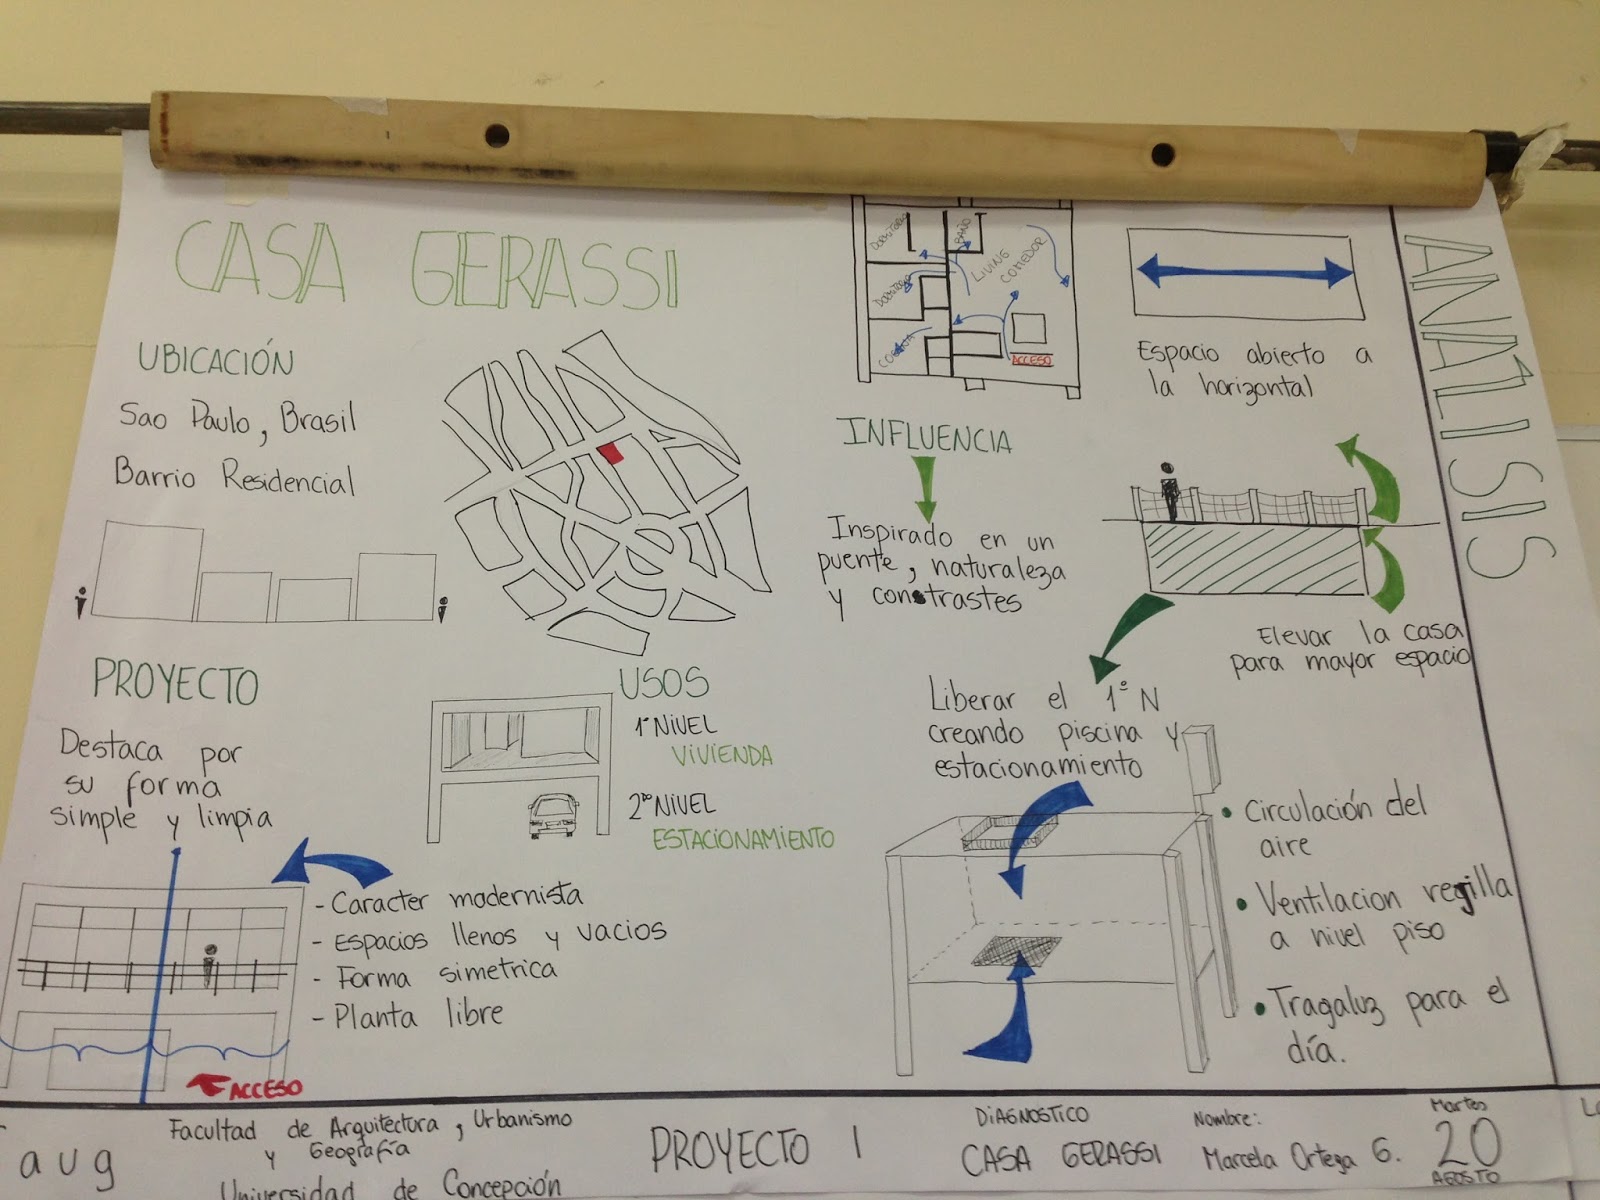 CASA GERASSI
UBICACIÓN
Sao Paulo, Brasil
Barrio Residencial
PROYECTO
Destaca por
su forma
simple y limpia
- Caracter modernista
- Espacios llenos y vacios
- Forma simetrica
- Planta libre
ACCESO
USOS
1° NIVEL
VIVIENDA
2do NIVEL
ESTACIONAMIENTO
DORMITORIO
BAÑO
LIVING
COMEDOR
DORMITORIO
COCINA
ACCESO
INFLUENCIA
Inspirado en un
puente, naturaleza
y constrastes
Espacio abierto a
la horizontal
Elevar la casa
para mayor espacio
Liberar el 1° N
creando piscina y
estacionamiento
• Circulación del
aire
• Ventilacion rejilla
a nivel piso
• Tragaluz para el
día.
ANÁLISIS
aug
Facultad de Arquitectura, Urbanismo
y Geografía
Universidad de Concepción
PROYECTO 1
DIAGNOSTICO
CASA GERASSI
Nombre:
Marcela Ortega G.
Martes
20
AGOSTO